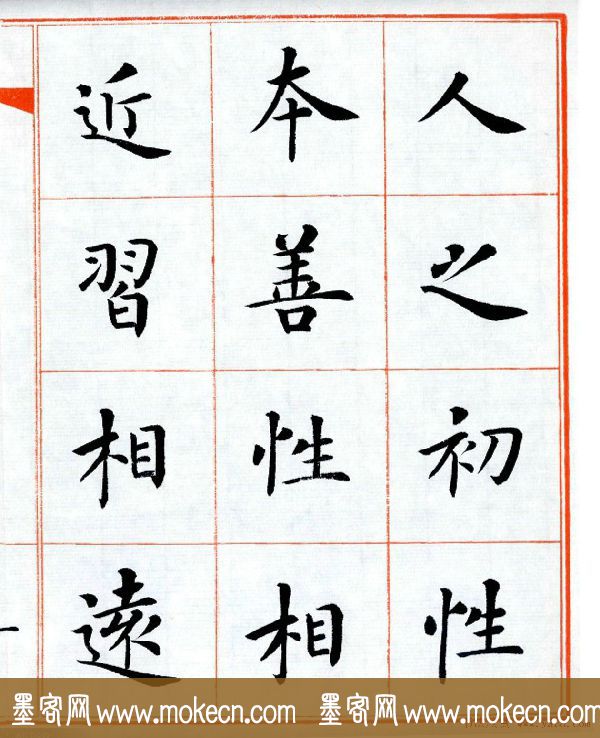 人之初性
本善性相
近習相遠
墨客网 www.mokecn.com 墨客网 www.mokecn.com